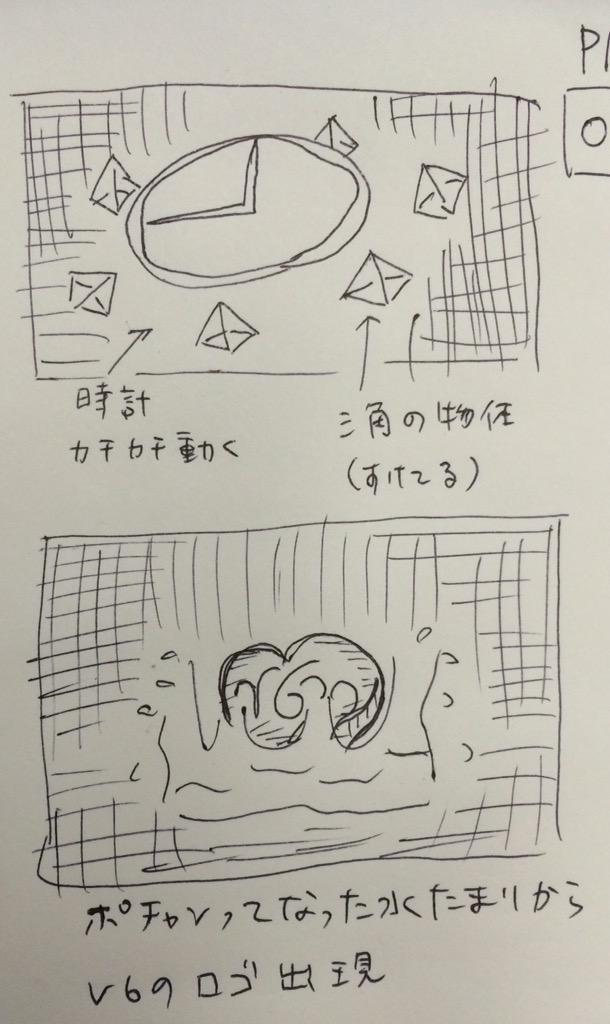 時計
カチカチ動く
三角の物体
(すけてる)
ポチャンってなった水たまりから
V6のロゴ出現